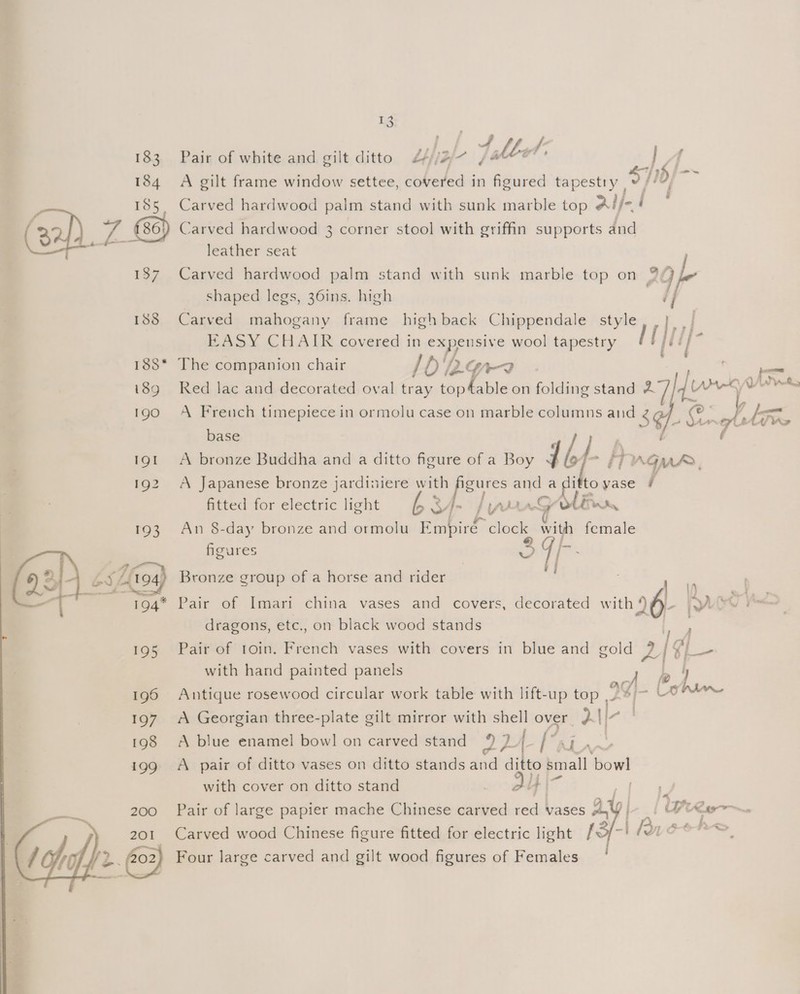 13
183 Pair of white and gilt ditto
184 A gilt frame window settee, covered in figured tapestry
185 Carved hardwood palm stand with sunk marble top
186 Carved hardwood 3 corner stool with griffin supports and
leather seat
187 Carved hardwood palm stand with sunk marble top on
shaped legs, 36ins. high
188 Carved mahogany frame high back Chippendale style
EASY CHAIR covered in expensive wool tapestry
188* The companion chair
189 Red lac and decorated oval tray top table on folding stand
190 A French timepiece in ormolu case on marble columns and
base
191 A bronze Buddha and a ditto figure of a Boy
192 A Japanese bronze jardiniere with figures and a ditto vase
fitted for electric light
193 An 8-day bronze and ormolu Empire clock with female
figures
194 Bronze group of a horse and rider
194* Pair of Imari china vases and covers, decorated with
dragons, etc., on black wood stands
195 Pair of 10in. French vases with covers in blue and gold
with hand painted panels
196 Antique rosewood circular work table with lift-up top Cohen
197 A Georgian three-plate gilt mirror with shell over
198 A blue enamel bowl on carved stand
199 A pair of ditto vases on ditto stands and ditto small bowl
with cover on ditto stand
200 Pair of large papier mache Chinese carved red vases
201 Carved wood Chinese figure fitted for electric light
202 Four large carved and gilt wood figures of Females